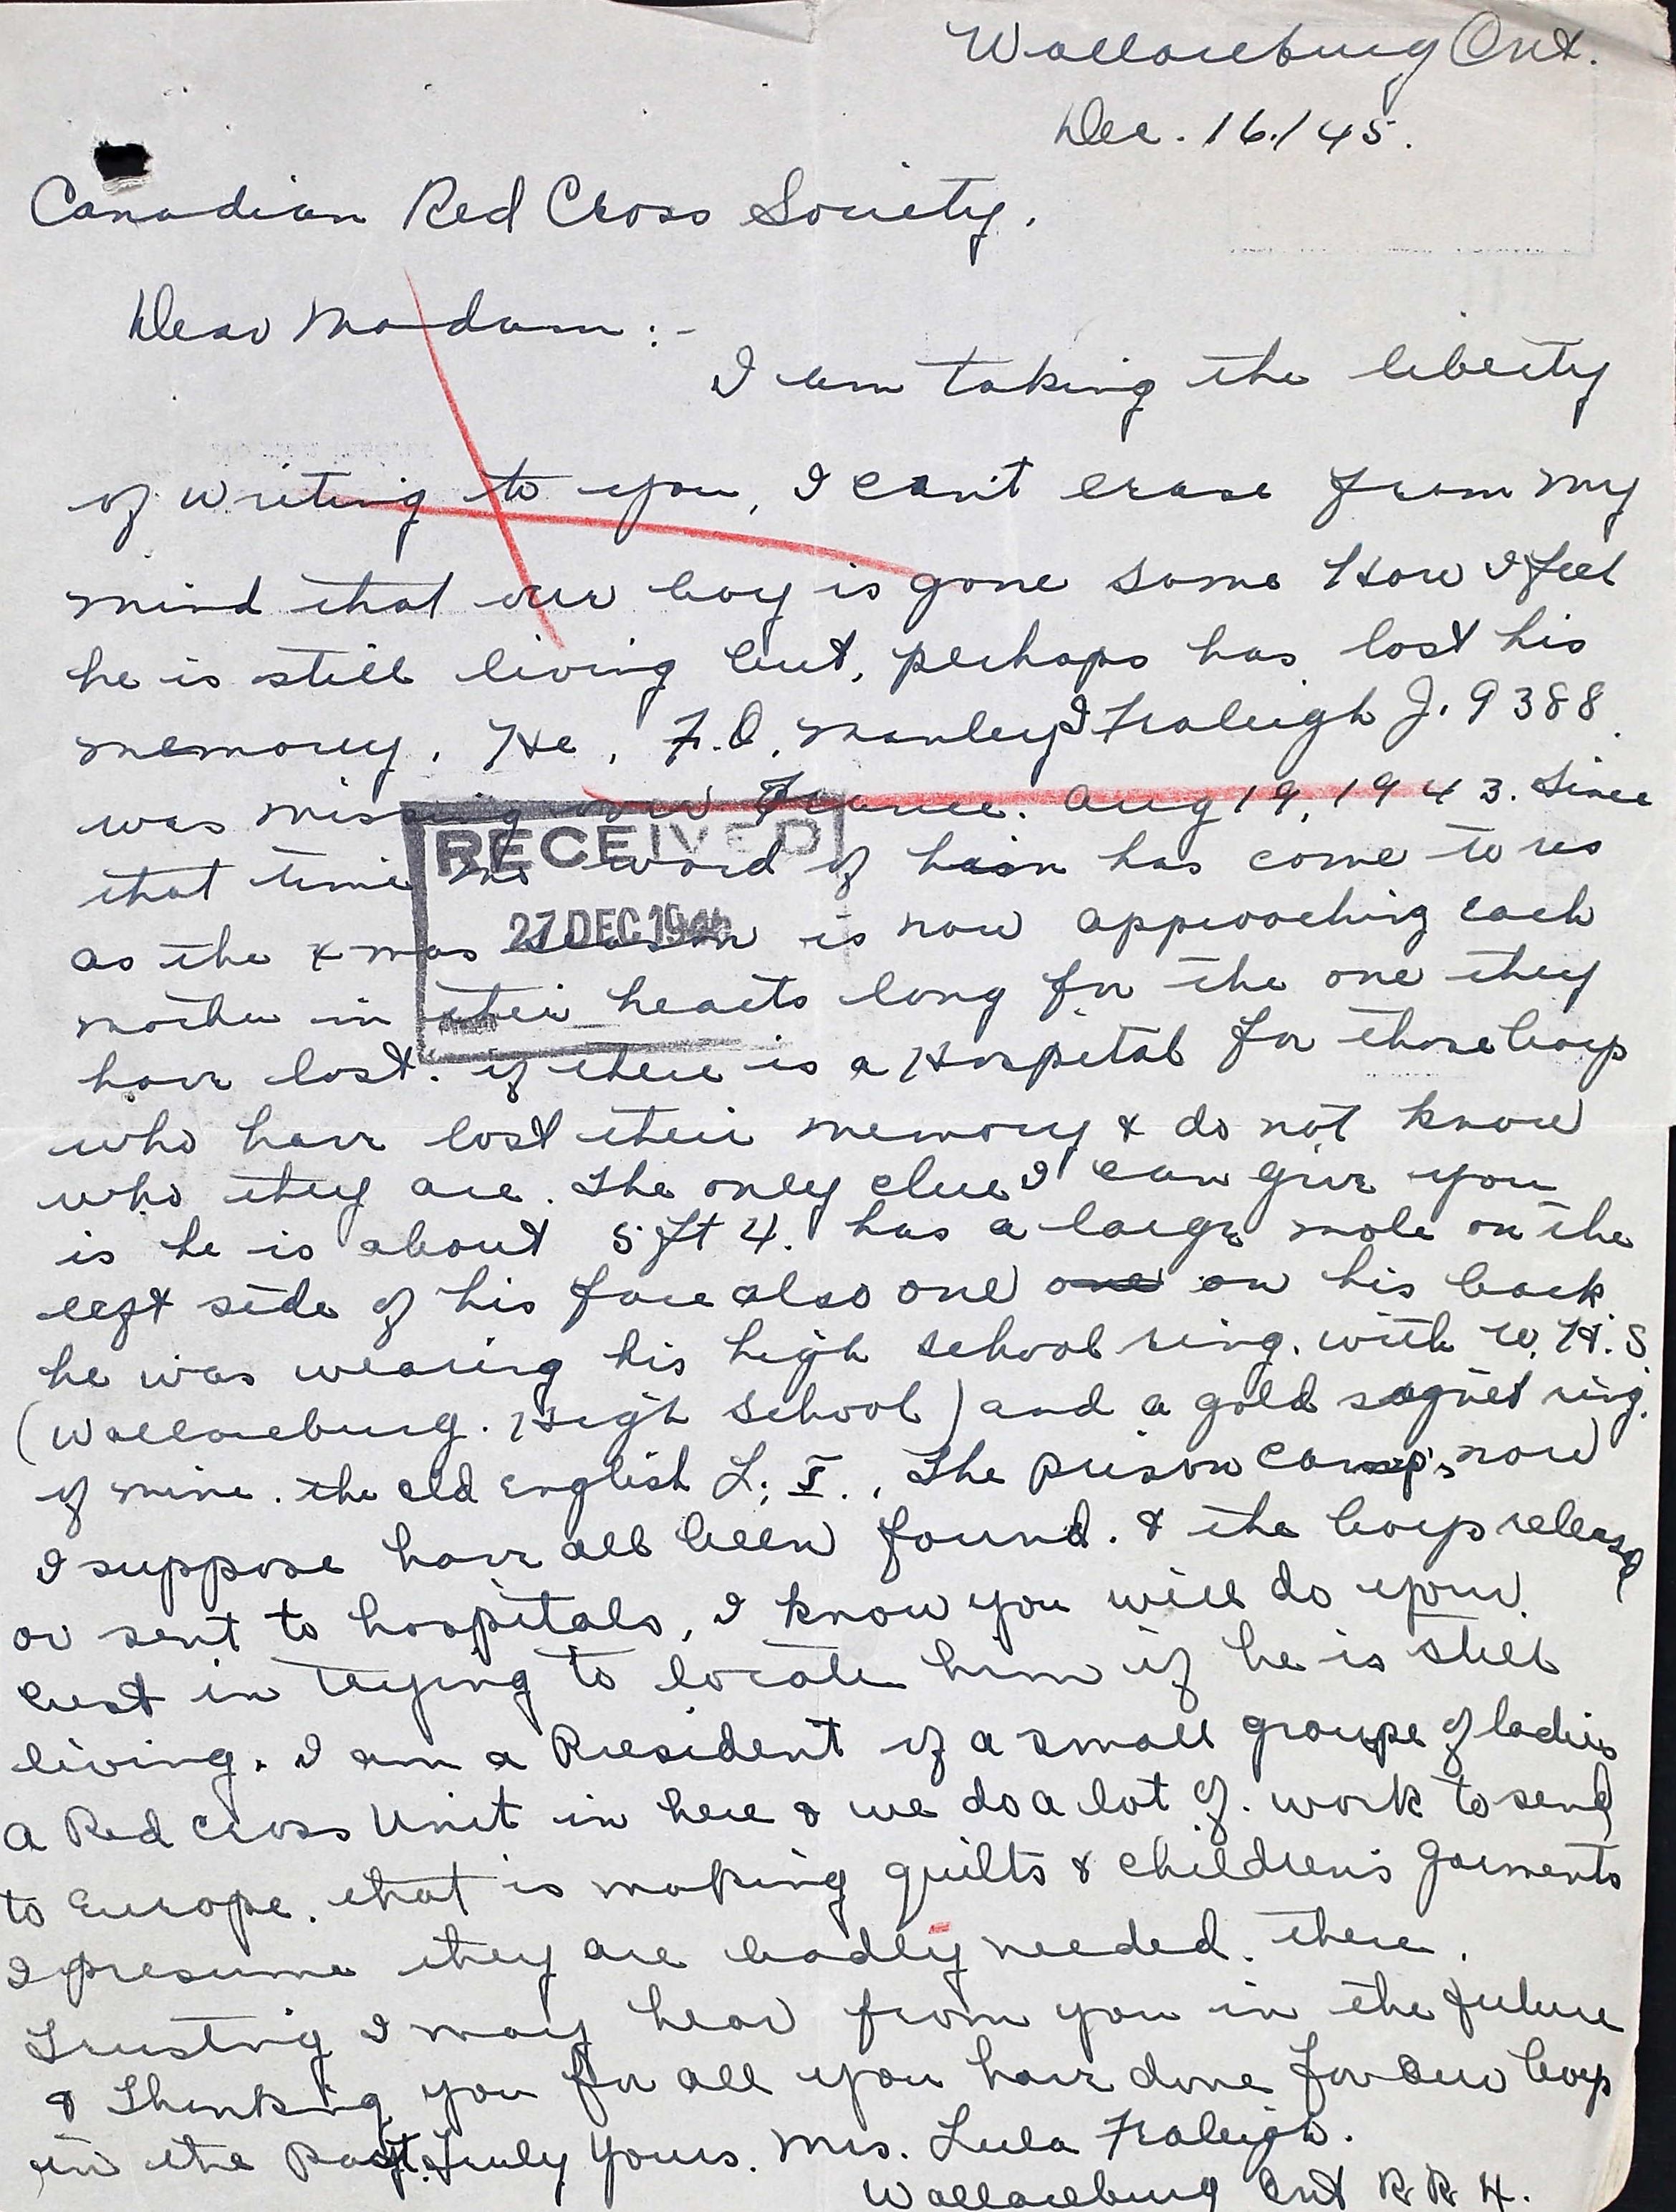 Wallaceburg Ont.
Dec. 16./45.
Canadian Red Cross Society.
Dear Madam :-
I am taking the liberty
of writing to you, I can't erase from my
mind that our boy is gone some How I feel
he is still living but, perhaps has lost his
memory. He, F.O. Manley I Fraleigh J. 9388.
was missing over France. Aug 19, 1943. Since
that time no word of him has come to us
as the xmas season is now approaching each
mother in their hearts long for the one they
have lost. if there is a Hospital for those boys
who have lost their memory & do not know
who they are. The only clue I can give you
is he is about 5 ft 4. has a large mole on the
left side of his face also one one on his back
he was wearing his high school ring. with W. H. S.
(Wallaceburg. High School) and a gold signet ring.
of mine. the old English L. I., The prison camps, now
I suppose have all been found. & the boys released
or sent to hospitals, I know you will do your
best in trying to locate him if he is still
living. I am a President of a small groupe of ladies
a Red Cross Unit in here & we do a lot of. work to send
to Europe. that is making quilts & children's garments
I presume they are badly needed. there.
Trusting I may hear from you in the future
& Thanking you for all you have done for our boys
in the past. Truly Yours. Mrs. Lula Fraleigh.
Wallaceburg Ont R. R. 4.
RECEIVED
27 DEC 1945